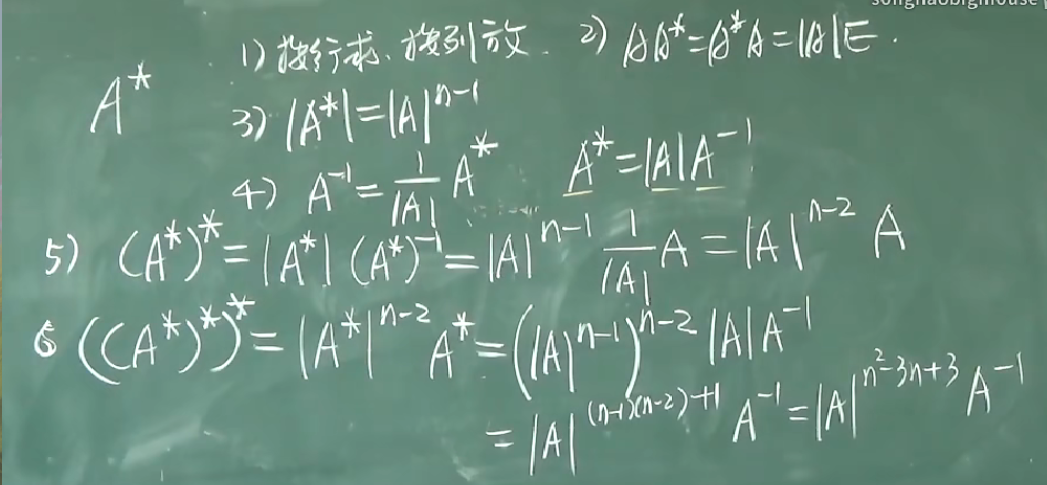 songhaobigmouse
1) 按行求、按列放. 2) AA*=A*A=|A|E.
A*
3) |A*|=|A|^{n-1}
4) A^{-1}=\frac{1}{|A|}A* A*=|A|A^{-1}
5) (A*)*=|A*|(A*)^{-1}=|A|^{n-1}\frac{1}{|A|}A=|A|^{n-2}A
6 ((A*)*)*=|A*|^{n-2}A*=(|A|^{n-1})^{n-2}|A|A^{-1}
=|A|^{(n-1)(n-2)+1}A^{-1}=|A|^{n^2-3n+3}A^{-1}